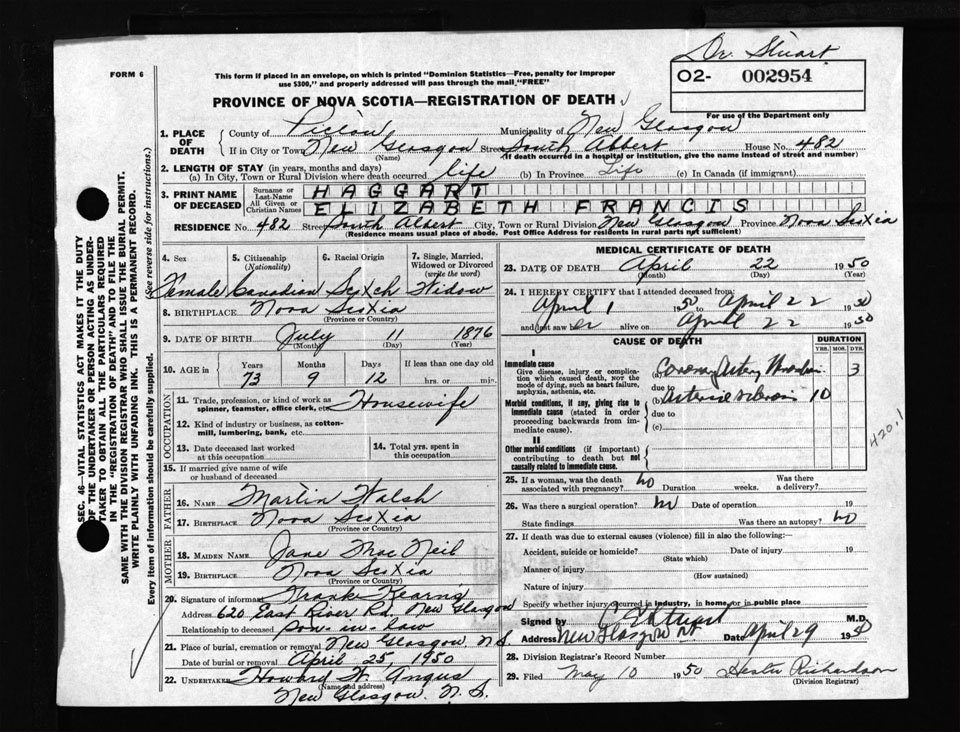 Dr. Stuart
FORM 6
This form if placed in an envelope, on which is printed "Dominion Statistics—Free, penalty for improper
use $300," and properly addressed will pass through the mail "FREE"
O2- 002954
For use of the Department only
PROVINCE OF NOVA SCOTIA—REGISTRATION OF DEATH
1. PLACE OF DEATH
County of Pictou Municipality of New Glasgow
If in City or Town New Glasgow Street South Albert House No. 482
(Name) (If death occurred in a hospital or institution, give the name instead of street and number)
2. LENGTH OF STAY (in years, months and days)
(a) In City, Town or Rural Division where death occurred life (b) In Province Life (c) In Canada (if immigrant)
3. PRINT NAME OF DECEASED
Surname or Last-Name HAGGART
All Given or Christian Names ELIZABETH FRANCIS
RESIDENCE No. 482 Street South Albert City, Town or Rural Division New Glasgow Province Nova Scotia
(Residence means usual place of abode. Post Office Address for residents in rural parts not sufficient)
4. Sex 5. Citizenship (Nationality) 6. Racial Origin 7. Single, Married, Widowed or Divorced (write the word)
Female Canadian Scotch Widow
8. BIRTHPLACE Nova Scotia
(Province or Country)
9. DATE OF BIRTH July 11 1876
(Month) (Day) (Year)
10. AGE in Years Months Days If less than one day old
73 9 12 hrs. or min.
OCCUPATION
11. Trade, profession, or kind of work as spinner, teamster, office clerk, etc. Housewife
12. Kind of industry or business, as cotton-mill, lumbering, bank, etc.
13. Date deceased last worked at this occupation
14. Total yrs. spent in this occupation
15. If married give name of wife or husband of deceased
FATHER
16. NAME Martin Walsh
17. BIRTHPLACE Nova Scotia
(Province or Country)
MOTHER
18. MAIDEN NAME Jane MacNeil
19. BIRTHPLACE Nova Scotia
(Province or Country)
20. Signature of informant Frank Kearns
Address 620 East River Rd. New Glasgow
Relationship to deceased son-in-law
21. Place of burial, cremation or removal New Glasgow, N.S.
Date of burial or removal April 25 1950
22. UNDERTAKER Howard W. Angus
(Name and address)
New Glasgow, N.S.
MEDICAL CERTIFICATE OF DEATH
23. DATE OF DEATH April 22 1950
(Month) (Day) (Year)
24. I HEREBY CERTIFY that I attended deceased from:
April 1 50 to April 22 1950
and last saw her alive on April 22 1950
CAUSE OF DEATH
DURATION
YRS. MOS. DYS.
I
Immediate cause
Give disease, injury or complication which caused death, not the mode of dying, such as heart failure, asphyxia, asthenia, etc.
(a) Coronary Artery Thrombosis 3
due to
(b) Arteriosclerosis 10
Morbid conditions, if any, giving rise to immediate cause (stated in order proceeding backwards from immediate cause).
due to
(c)
II
Other morbid conditions (if important) contributing to death but not causally related to immediate cause.
420.1
25. If a woman, was the death associated with pregnancy? no Duration weeks. Was there a delivery?
26. Was there a surgical operation? no Date of operation 19
State findings Was there an autopsy? no
27. If death was due to external causes (violence) fill in also the following:—
Accident, suicide or homicide? Date of injury 19
(State which)
Manner of injury
(How sustained)
Nature of injury
Specify whether injury occurred in industry, in home, or in public place
Signed by Stuart M.D.
Address New Glasgow NS Date April 29 1950
28. Division Registrar's Record Number
29. Filed May 10 1950 Hester Richardson
(Division Registrar)
SEC. 46—VITAL STATISTICS ACT MAKES IT THE DUTY
OF THE UNDERTAKER OR PERSON ACTING AS UNDER-
TAKER TO OBTAIN ALL THE PARTICULARS REQUIRED
IN THE "REGISTRATION OF DEATH" AND TO FILE THE
SAME WITH THE DIVISION REGISTRAR WHO SHALL ISSUE THE BURIAL PERMIT.
WRITE PLAINLY WITH UNFADING INK. THIS IS A PERMANENT RECORD.
Every item of information should be carefully supplied. (See reverse side for instructions.)